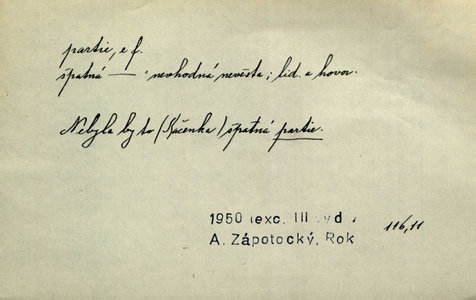 partie, e f.
špatná — nevhodná nevěsta; lid. a hovor.
Nebyla by to (Káčenka) špatná partie.
1950 (exc. III. vyd.)
A. Zápotocký, Rok 116,11